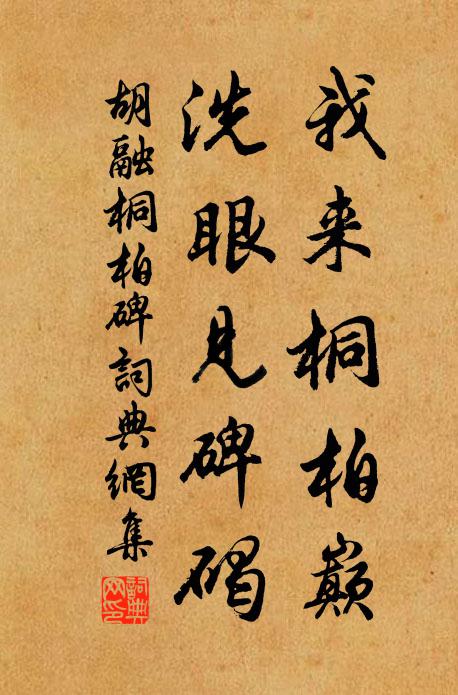 我来桐柏巅
洗眼見碑碣
胡融桐柏碑詞典網集
詞典网印